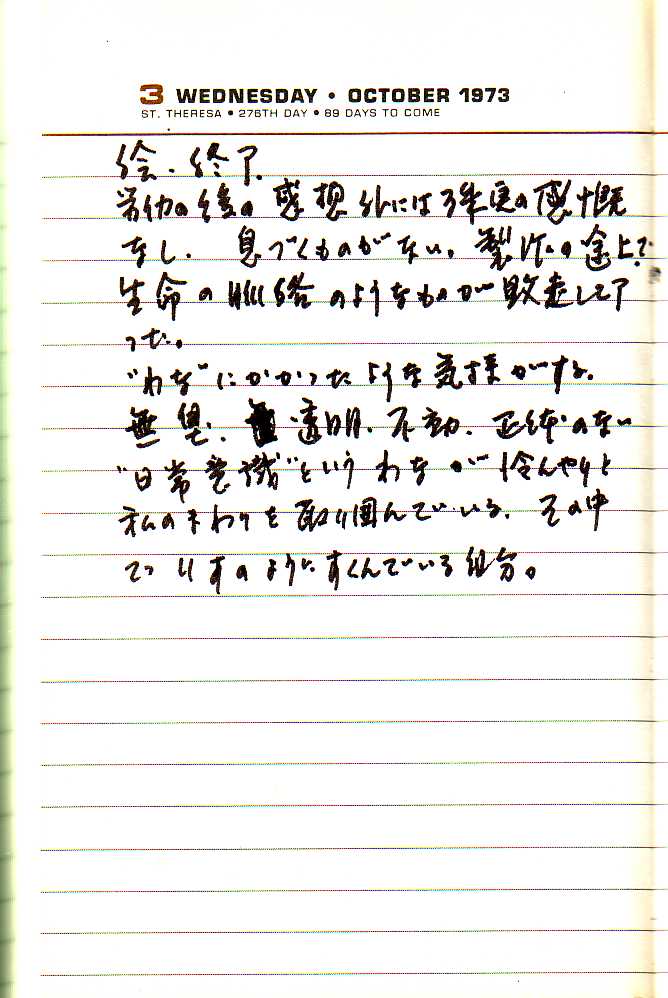 3 WEDNESDAY • OCTOBER 1973
ST. THERESA • 276TH DAY • 89 DAYS TO COME
絵、終了。
労働の後の感想外には の感慨
なし、息づくものがない。製作の途上で
生命の脈絡のようなものが敗走して了
った。
"わな"にかかったような気持がする。
無臭、透明、不動、正体のない
"日常意識"というわなが冷んやりと
私のまわりを取り囲んでいる。その中
でりすのようにすくんでいる自分。